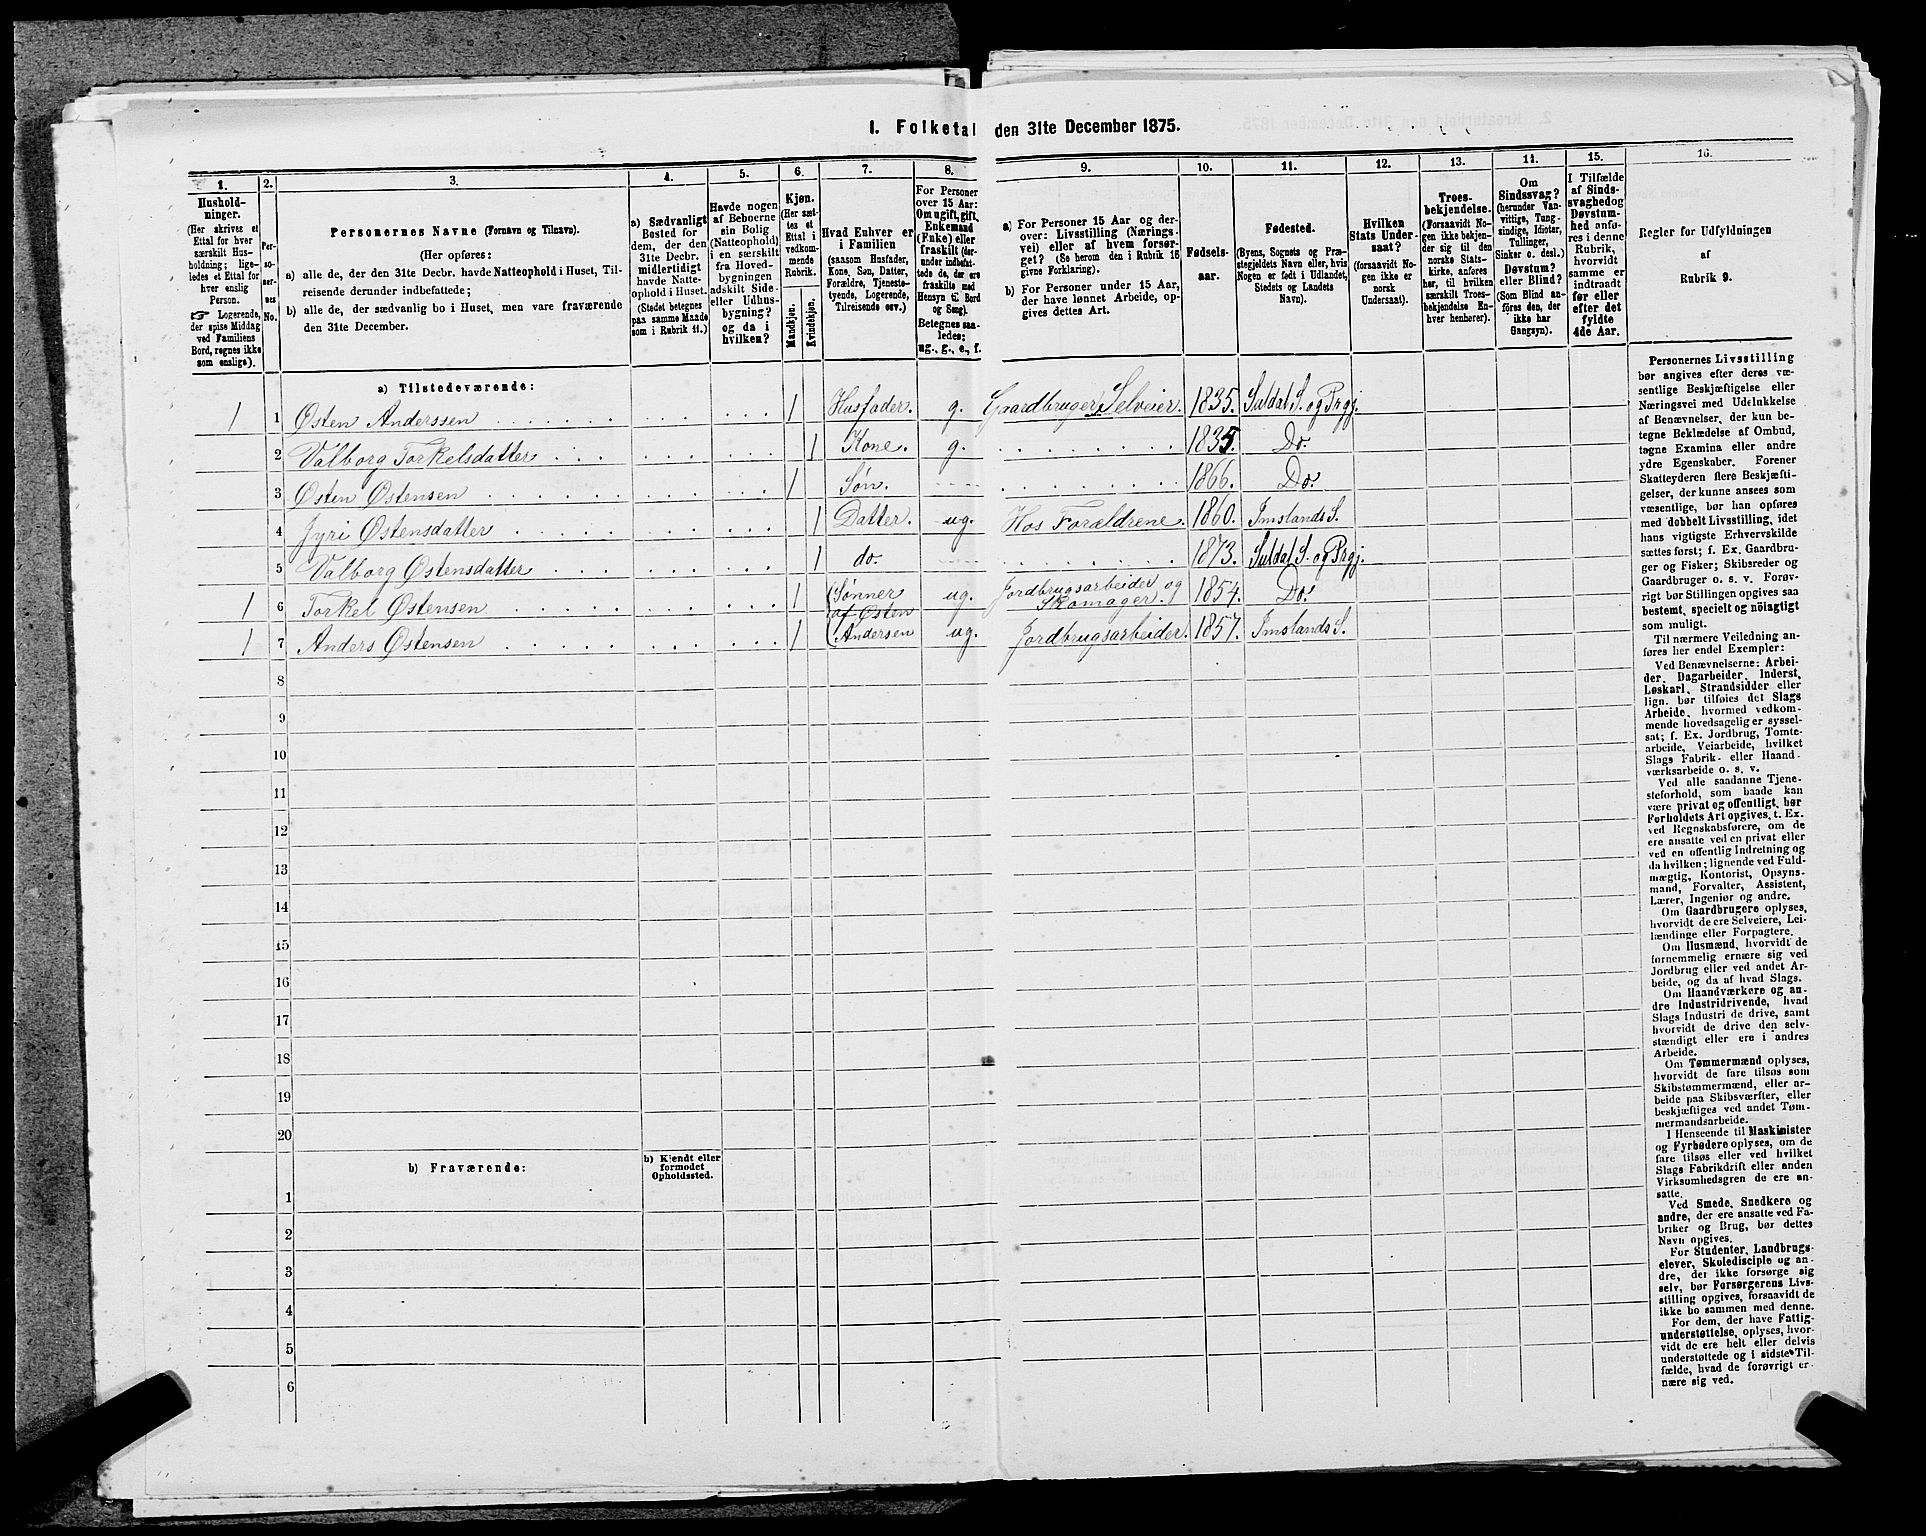 I. Folketal den 31te December 1875.
1.
Hushold-
ninger.
(Her skrives et
Ettal for hver
særskilt Hus-
holdning; lige-
ledes et Ettal for
hver enslig
Person.
☞ Logerende,
der spise Middag
ved Familiens
Bord, regnes ikke
som enslige).
2.
Per-
so-
ner-
nes
No.
3.
Personernes Navne (Fornavn og Tilnavn).
(Her opføres:
a) alle de, der den 31te Decbr. havde Natteophold i Huset, Til-
reisende derunder indbefattede;
b) alle de, der sædvanlig bo i Huset, men vare fraværende
den 31te December.
4.
a) Sædvanligt
Bosted for
dem, der den
31te Decbr.
midlertigt
havde Natte-
ophold i Huset.
(Stedet betegnes
paa samme Maade
som i Rubrik 11.)
5.
Havde nogen
af Beboerne
sin Bolig
(Natteophold)
i en særskilt
fra Hoved-
bygningen
adskilt Side-
eller Udhus-
bygning?
og da i
hvilken?
6.
Kjøn.
(Her sæt-
tes et
Ettal i
vedkom-
mende
Rubrik.
Mandkjøn.
Kvindekjøn.
7.
Hvad Enhver er
i Familien
(saasom Husfader,
Kone, Søn, Datter,
Forældre, Tjeneste-
tyende, Logerende,
Tilreisende osv.)
8.
For Personer
over 15 Aar:
Om ugift, gift,
Enkemand
(Enke) eller
fraskilt (der-
under indbefat-
tede de, der ere
fraskilte med
Hensyn til Bord
og Seng).
Betegnes saa-
ledes:
ug., g., e., f.
9.
a) For Personer 15 Aar og der-
over: Livsstilling (Nærings-
vei) eller af hvem forsør-
get? (Se herom den i Rubrik 16
givne Forklaring).
b) For Personer under 15 Aar,
der have lønnet Arbeide, op-
gives dettes Art.
10.
Fødsels-
aar.
11.
Fødested.
(Byens, Sognets og Præ-
stegjeldets Navn eller, hvis
Nogen er født i Udlandet,
Stedets og Landets
Navn).
12.
Hvilken
Stats Under-
saat?
(forsaavidt No-
gen ikke er
norsk
Undersaat).
13.
Troes-
bekjendelse.
(Forsaavidt No-
gen ikke bekjen-
der sig til den
norske Stats-
kirke, anføres
her, til hvilken
særskilt Troes-
bekjendelse En-
hver henhører).
14.
Om
Sindssvag?
(herunder Van-
vittige, Tung-
sindige, Idioter,
Tullinger,
Sinker o. desl.)
Døvstum?
eller Blind?
(Som Blind an-
føres den, der
ikke har
Gangsyn).
15.
I Tilfælde
af Sinds-
svaghed og
Døvstum-
hed anfø-
res i denne
Rubrik,
hvorvidt
samme er
indtraadt
før eller
efter det
fyldte
4de Aar.
16.
Regler for Udfyldningen
af
Rubrik 9.
a) Tilstedeværende:
1 1 Østen Anderssen 1 Husfader. g. Gaardbruger Selveier. 1835. Suldal S. og Prgj.
2 Valborg Torkelsdatter 1 Kone. g. 1835. Do.
3 Østen Østensen 1 Søn. 1866. Do.
4 Jyri Østensdatter 1 Datter. ug. Hos Forældrene. 1860. Imslands S.
5 Valborg Østensdatter 1 do. 1873. Suldal S. og Prgj.
1 6 Torkel Østensen 1 (Sønner af Østen ug. Jordbrugsarbeider og Skomager. 1854. Do.
1 7 Anders Østensen 1 (Andersen ug. Jordbrugsarbeider. 1857. Imslands S.
8
9
10
11
12
13
14
15
16
17
18
19
20
b) Fraværende:
b) Kjendt eller
formodet
Opholdssted.
1
2
3
4
5
6
Personernes Livsstilling
bør angives efter deres væ-
sentlige Beskjæftigelse eller
Næringsvei med Udelukkelse
af Benævnelser, der kun be-
tegne Beklædelse af Ombud,
tagne Examina eller andre
ydre Egenskaber. Forener
Skatteyderen flere Beskjæfti-
gelser, der kunne ansees som
væsentlige, bør han opføres
med dobbelt Livsstilling, idet
hans vigtigste Erhvervskilde
sættes først; f. Ex. Gaardbru-
ger og Fisker; Skibsreder og
Gaardbruger o. s. v. Forøv-
rigt bør Stillingen opgives saa
bestemt, specielt og nøiagtigt
som muligt.
Til nærmere Veiledning an-
føres her endel Exempler:
Ved Benævnelserne: Arbei-
der, Dagarbeider, Inderst,
Løskarl, Strandsidder eller
lign. bør tilføies det Slags
Arbeide, hvormed vedkom-
mende hovedsagelig er syssel-
sat; f. Ex. Jordbrug, Tomte-
arbeide, Veiarbeide, hvilket
Slags Fabrik- eller Haand-
værksarbeide o. s. v.
Ved alle saadanne Tjene-
steforhold, som baade kan
være privat og offentligt, bør
Forholdets Art opgives, t. Ex.
ved Regnskabsførere, om de
ere ansatte ved en privat eller
ved en offentlig Indretning og
da hvilken; lignende ved Fuld-
mægtig, Kontorist, Opsyns-
mand, Forvalter, Assistent,
Lærer, Ingeniør og andre.
Om Gaardbrugere oplyses,
hvorvidt de ere Selveiere, Lei-
lændinge eller Forpagtere.
Om Husmænd, hvorvidt de
fornemmelig ernære sig ved
Jordbrug eller ved andet Ar-
beide, og da af hvad Slags.
Om Haandværkere og an-
dre Industridrivende, hvad
Slags Industri de drive, samt
hvorvidt de drive den selv-
stændigt eller ere i andres
Arbeide.
Om Tømmermænd oplyses,
hvorvidt de fare tilsøs som
Skibstømmermænd, eller ar-
beide paa Skibsværfter, eller
beskjæftiges ved andet Tøm-
mermandsarbeide.
I Henseende til Maskinister
og Fyrbødere oplyses, om de
fare tilsøs eller ved hvilket
Slags Fabrikdrift eller anden
Virksomhedsgren de ere an-
satte.
Ved Smede, Snedkere og
andre, der ere ansatte ved Fa-
briker og Brug, bør dettes
Navn opgives.
For Studenter, Landbrugs-
elever, Skoledisciple og an-
dre, der ikke forsørge sig
selv, bør Forsørgerens Livs-
stilling opgives, forsaavidt de
ikke bo sammen med denne.
For dem, der have Fattig-
understøttelse, oplyses, hvor-
vidt de ere helt eller delvis
understøttede og i sidste Til-
fælde, hvad de forøvrigt er-
nære sig ved.